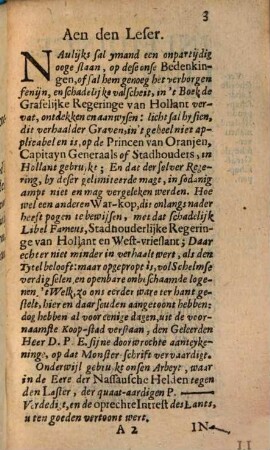 3
Aen den Leser.
NAulijks sal ymand een onpartijdig
ooge slaan, op dese onse Bedenkin-
gen, of sal hem genoeg het verborgen
fenijn, en schadelijke valscheit, in 't Boek de
Grafelijke Regeringe van Hollant ver-
vat, ontdekken en aanwysen: licht sal hy sien,
dit verhaal der Graven, in 't geheel niet ap-
plicabel en is, op de Princen van Oranjen,
Capitayn Generaals of Stadhouders, in
Hollant gebruikt; En dat der selver Rege-
ring, by deser gelimiteerde magt, in sodanig
ampt niet en mag vergeleken werden. Hoe
wel een anderen War-kop, dit onlangs nader
heeft pogen te bewijsen, met dat schadelijk
Libel Fameus, Stadhouderlijke Regerin-
ge van Hollant en West-vrieslant; Daar
echter niet minder in verhaalt wert, als den
Tytel belooft: maar opgepropt is, vol Schelmse
verdigselen, en openbare onbeschaamde loge-
nen. Welk, zo ons eerder ware ter hant ge-
stelt, hier en daar seuden aangetoont hebben:
dog hebben al voor enige dagen, uit de voor-
naamste Koop-stad verstaan, den Geleerden
Heer D. P. E. sijne doorwrochte aanteyke-
ninge, op dat Monster-schrift vervaardigt.
Onderwijl gebruikt onsen Arbeyt, waar
in de Eere der Nassausche Helden tegen
den Laster, der quaat-aardigen P.
Verdedigt, en de oprechte Intrest des Lants,
u ten goeden vertoont wert.
A 2 IN